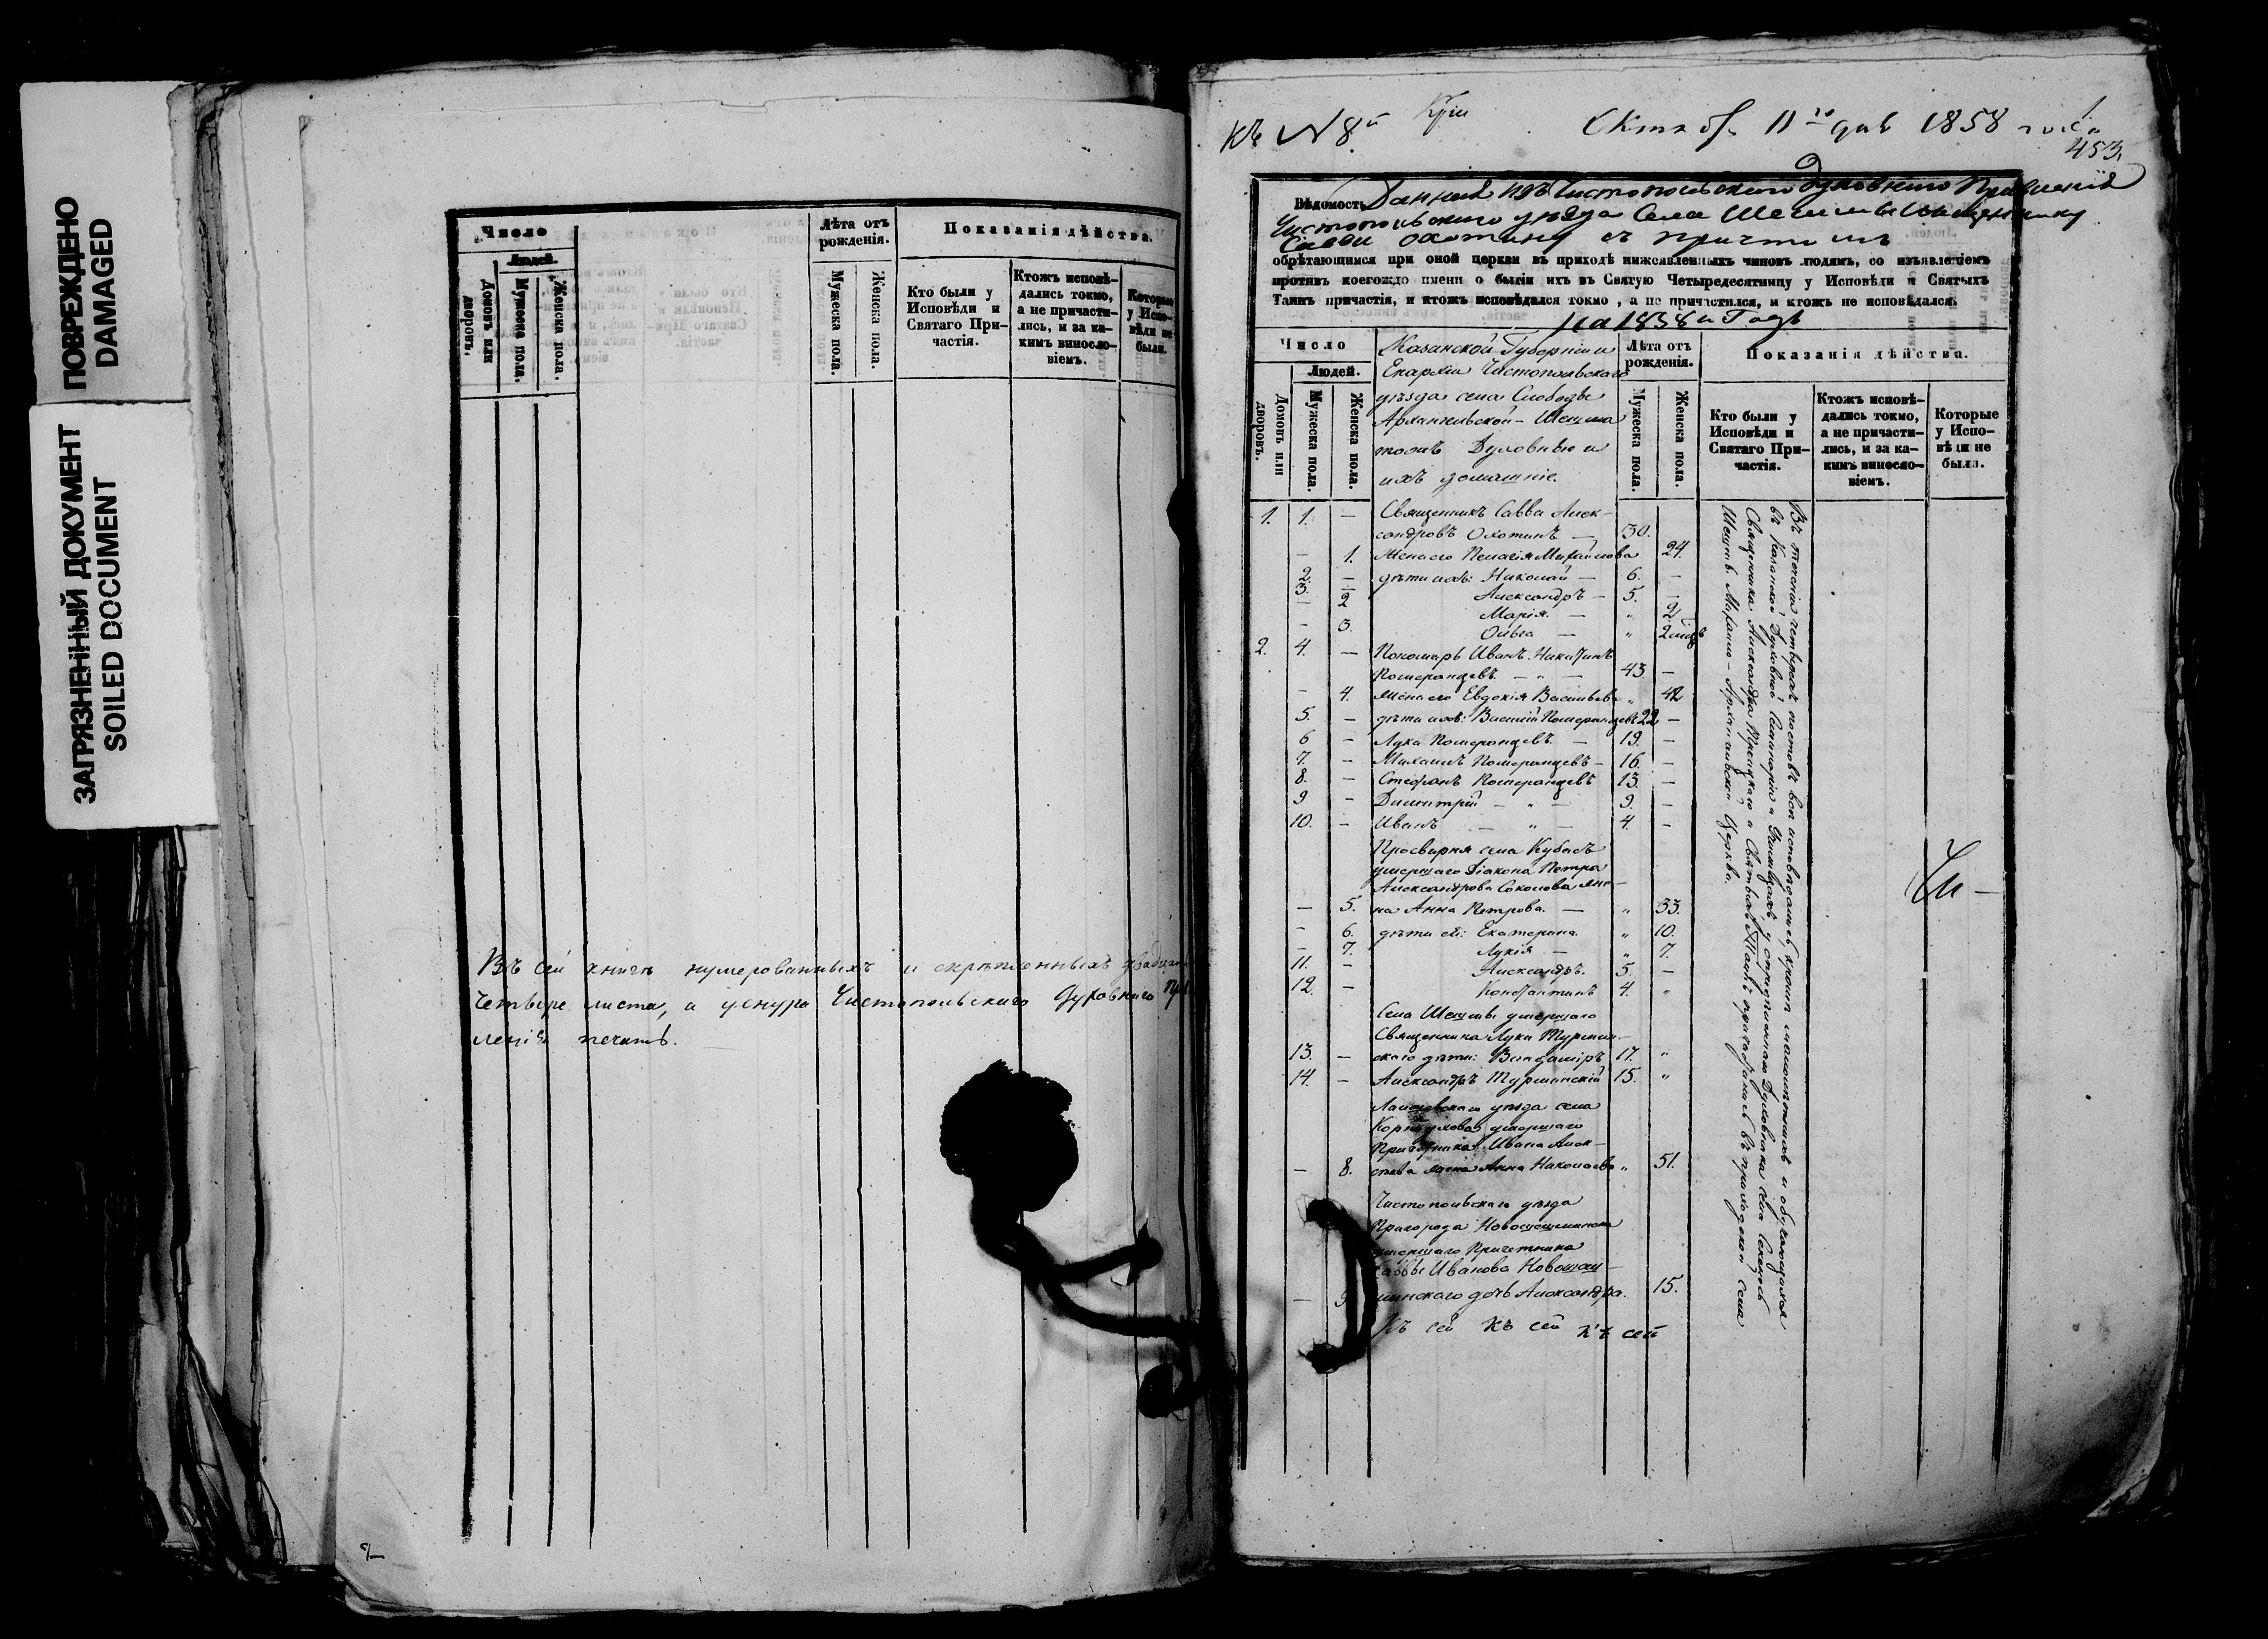 ПОВРЕЖДЕНО
DAMAGED
ЗАГРЯЗНЕННЫЙ ДОКУМЕНТ
SOILED DOCUMENT
Число
Людей.
Домовъ или дворовъ.
Мужеска пола.
Женска пола.
Лѣта отъ рожденія.
Мужеска пола.
Женска пола.
Показанія дѣйства.
Кто были у Исповѣди и Святаго Причастія.
Ктожъ исповѣдались токмо, а не причастились, и за какимъ винословіемъ.
Которые у Исповѣди не были.
Въ сей книгѣ нумерованныхъ и скрѣпленныхъ двадцать
четыре листа, а у снура Чистопольскаго Духовнаго Прав
ленія печать.
Къ № 8й
Октяб. 11го дня 1858 года
1.
453.
Вѣдомость Данная изъ Чистопольскаго Духовнаго Правленія
Чистопольскаго уѣзда Села Шешмы Священнику
Саввѣ Охотину съ причтомъ
обрѣтающимся при оной церкви въ приходѣ нижеявленныхъ чиновъ людямъ, со изъявленіемъ
противъ коегождо имени о бытіи ихъ въ Святую Четыредесятницу у Исповѣди и Святыхъ
Таинъ причастія, и ктожъ исповѣдался токмо, а не причастился, и ктожъ не исповѣдался.
на 1858й Годъ
Число
Людей.
Домовъ или дворовъ.
Мужеска пола.
Женска пола.
Казанской Губерніи и
Епархіи Чистопольскаго
уѣзда села Слободы
Архангельской-Шешма
тожъ Духовные и
ихъ домашніе.
Лѣта отъ рожденія.
Мужеска пола.
Женска пола.
Показанія дѣйства.
Кто были у Исповѣди и Святаго Причастія.
Ктожъ исповѣдались токмо, а не причастились, и за какимъ винословіемъ.
Которые у Исповѣди не были.
1. 1. — Священникъ Савва Алек-
сандровъ Охотинъ — 30.
— 1. Жена его Пелагія Михайлова 24.
2. — дѣти ихъ: Николай — 6. —
3. — Александръ — 5. —
— 2 Марія. — " 2
— 3. Ольга — " 2 мѣс
2. 4. — Пономарь Иванъ Никитинъ
Померанцевъ — " — 43. —
— 4. Жена его Евдокія Васильева " 42
5. — дѣти ихъ: Василій Померанцевъ 22 —
6 — Лука Померанцевъ. — 19. —
7. — Михаилъ Померанцевъ — 16. —
8. — Стефанъ Померанцевъ 13. —
9 — Димитрій — " — 9. —
10. — Иванъ — " — 4. —
Просвирня села Кубасъ
умершаго Діакона Петра
Александрова Соколова же-
— 5. на Анна Петрова. — " 33.
— 6. дѣти ей: Екатерина. " 10.
— 7. Лукія — " 7.
11. — Александръ. 5. —
12. — Константинъ 4. "
Села Шешмы умершаго
Священника Луки Турмин-
13. — скаго дѣти: Владиміръ 17. "
14. — Александръ Турминскій 15. "
Лаишевскаго уѣзда села
умершаго
Причетника Ивана Алек-
— 8. сѣева жена Анна Николаева " 51.
Чистопольскаго уѣзда
Пригорода Новошешминска
умершаго Причетника
Саввы Иванова Новошеш-
— 9 минскаго дочь Александра. 15.
Къ сей Къ сей Къ сей
Въ теченіи четырехъ постовъ вси исповѣдались, кромѣ малолѣтнихъ и обучающихся
въ Казанской Духовной Семинаріи и Училищахъ у опредѣленнаго Духовника села
Священника Александра а Святыхъ Таинъ причащались въ приходской села
Шешмѣ. Михайло-Архангельской Церкви.